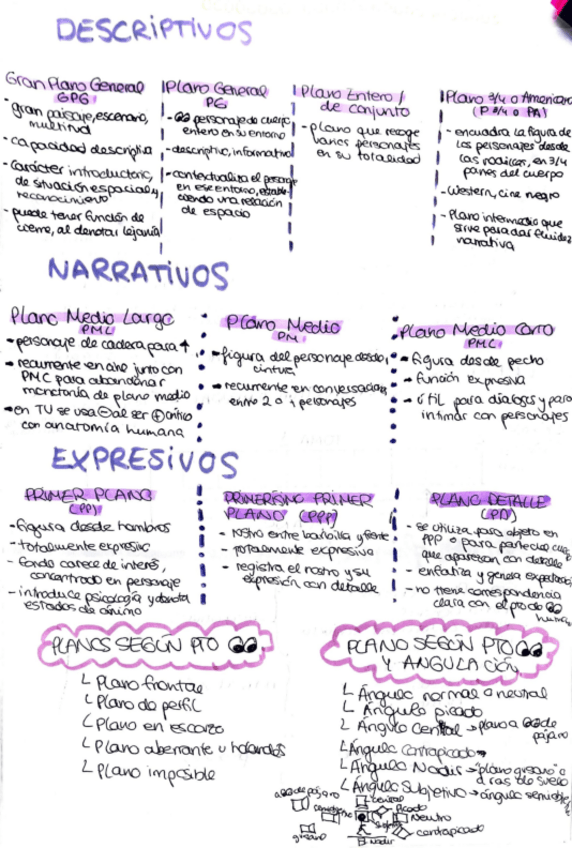 DESCRIPTIVOS
Gran Plano General
GPG
- gran paisaje, escenario,
multitud
- capacidad descriptiva
- carácter introductorio,
de situación espacial y
reconocimiento
- puede tener función de
cierre, al denotar lejanía
Plano General
PG
- personaje de cuerpo
entero en su entorno
- descriptivo, informativo
- contextualiza el personaje
en ese entorno, estable-
ciendo una relación
de espacio
Plano Entero /
de conjunto
- plano que recoge
varios personajes
en su totalidad
Plano 3/4 o Americano
(P 3/4 o PA)
- encuadra la figura de
los personajes desde
las rodillas, en 3/4
partes del cuerpo
- Western, cine negro
- Plano intermedio que
sirve para dar fluidez
narrativa
NARRATIVOS
Plano Medio Largo
PML
personaje de cadera para ↑
recurrente en cine junto con
PMC para abandonar
monotonía de plano medio
en TV se usa ⊖ al ser ⊕
con anatomía humana
Plano Medio
PM
figura del personaje desde
cintura
recurrente en conversaciones
entre 2 o + personajes
Plano Medio Corto
PMC
figura desde pecho
función expresiva
útil para dialogos y para
intimar con personajes
EXPRESIVOS
PRIMER PLANO
(PP)
- figura desde hombros
- totalmente expresivo
- fondo carece de interés,
concentrado en personaje
- introduce psicología y denota
estados de ánimo
PRIMERÍSIMO PRIMER
PLANO (PPP)
- rostro entre barbilla y frente
- totalmente expresivo
- registra el rostro y su
expresión con detalle
PLANO DETALLE
(PD)
- se utiliza para objeto en
PPP o para parte cuerpo
que aparezcan con detalle
- enfatiza y genera expectación
- no tiene correspondencia
clara con el pto de
humano
PLANOS SEGÚN PTO
└ Plano frontal
└ Plano de perfil
└ Plano en escorzo
└ Plano aberrante u holandés
└ Plano imposible
PLANO SEGÚN PTO
Y ANGULACIÓN
└ Ángulo normal o neutral
└ Ángulo picado
└ Ángulo Cenital → plano a de
pájaro
└ Ángulo Contrapicado
└ Ángulo Nadir → "plano gusano" o
a ras de suelo
└ Ángulo Subjetivo → ángulo semisubje
de pájaro
cenital
picado
Neutro
contrapicado
Nadir
gusano